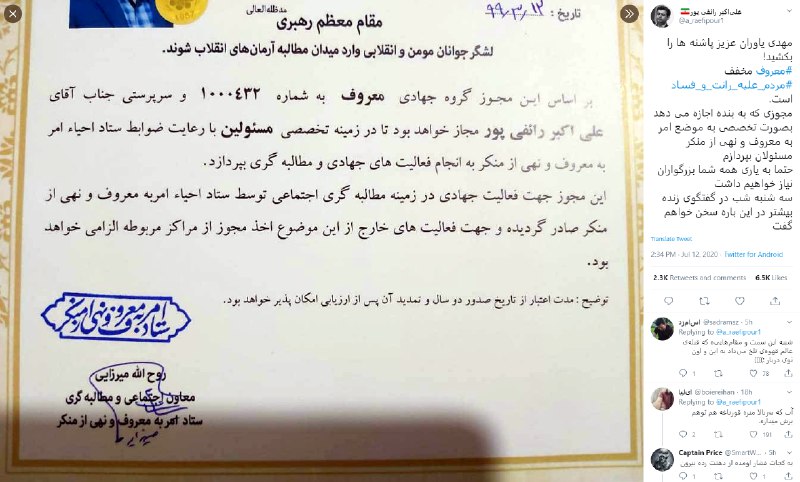 مدظله‌العالی
تاریخ: ۹۹,۳,۱۳
مقام معظم رهبری
لشگر جوانان مومن و انقلابی وارد میدان مطالبه آرمان‌های انقلاب شوند.
بر اساس این مجوز گروه جهادی معروف به شماره ۱۰۰۰۴۳۲ و سرپرستی جناب آقای
علی اکبر رائفی پور مجاز خواهد بود تا در زمینه تخصصی مسئولین با رعایت ضوابط ستاد احیاء امر
به معروف و نهی از منکر به انجام فعالیت های جهادی و مطالبه گری بپردازد.
این مجوز جهت فعالیت جهادی در زمینه مطالبه گری اجتماعی توسط ستاد احیاء امربه معروف و نهی از
منکر صادر گردیده و جهت فعالیت های خارج از این موضوع اخذ مجوز از مراکز مربوطه الزامی خواهد
بود.
توضیح: مدت اعتبار از تاریخ صدور دو سال و تمدید آن پس از ارزیابی امکان پذیر خواهد بود.
ستاد امر به معروف و نهی از منکر
روح الله میرزایی
معاون اجتماعی و مطالبه گری
ستاد امر به معروف و نهی از منکر
علی‌اکبر رائفی پور
@a_raefipour1
مهدی یاوران عزیز پاشنه ها را
بکشید!
#معروف مخفف
#مردم_علیه_رانت_و_فساد
است.
مجوزی که به بنده اجازه می دهد
بصورت تخصصی به موضع امر
به معروف و نهی از منکر
مسئولان بپردازم
حتما به یاری همه شما بزرگواران
نیاز خواهیم داشت
سه شنبه شب در گفتگوی زنده
بیشتر در این باره سخن خواهم
گفت
Translate Tweet
2:34 PM · Jul 12, 2020 · Twitter for Android
2.3K Retweets and comments 6.5K Likes
@sadramaz · 5h
Replying to @a_raefipour1
1 78
· 10h
Replying to @a_raefipour1
2 191
Captain Price @SmartW... · 5h
به کجات فشار اومده از دهنت زده بیرون
1 1